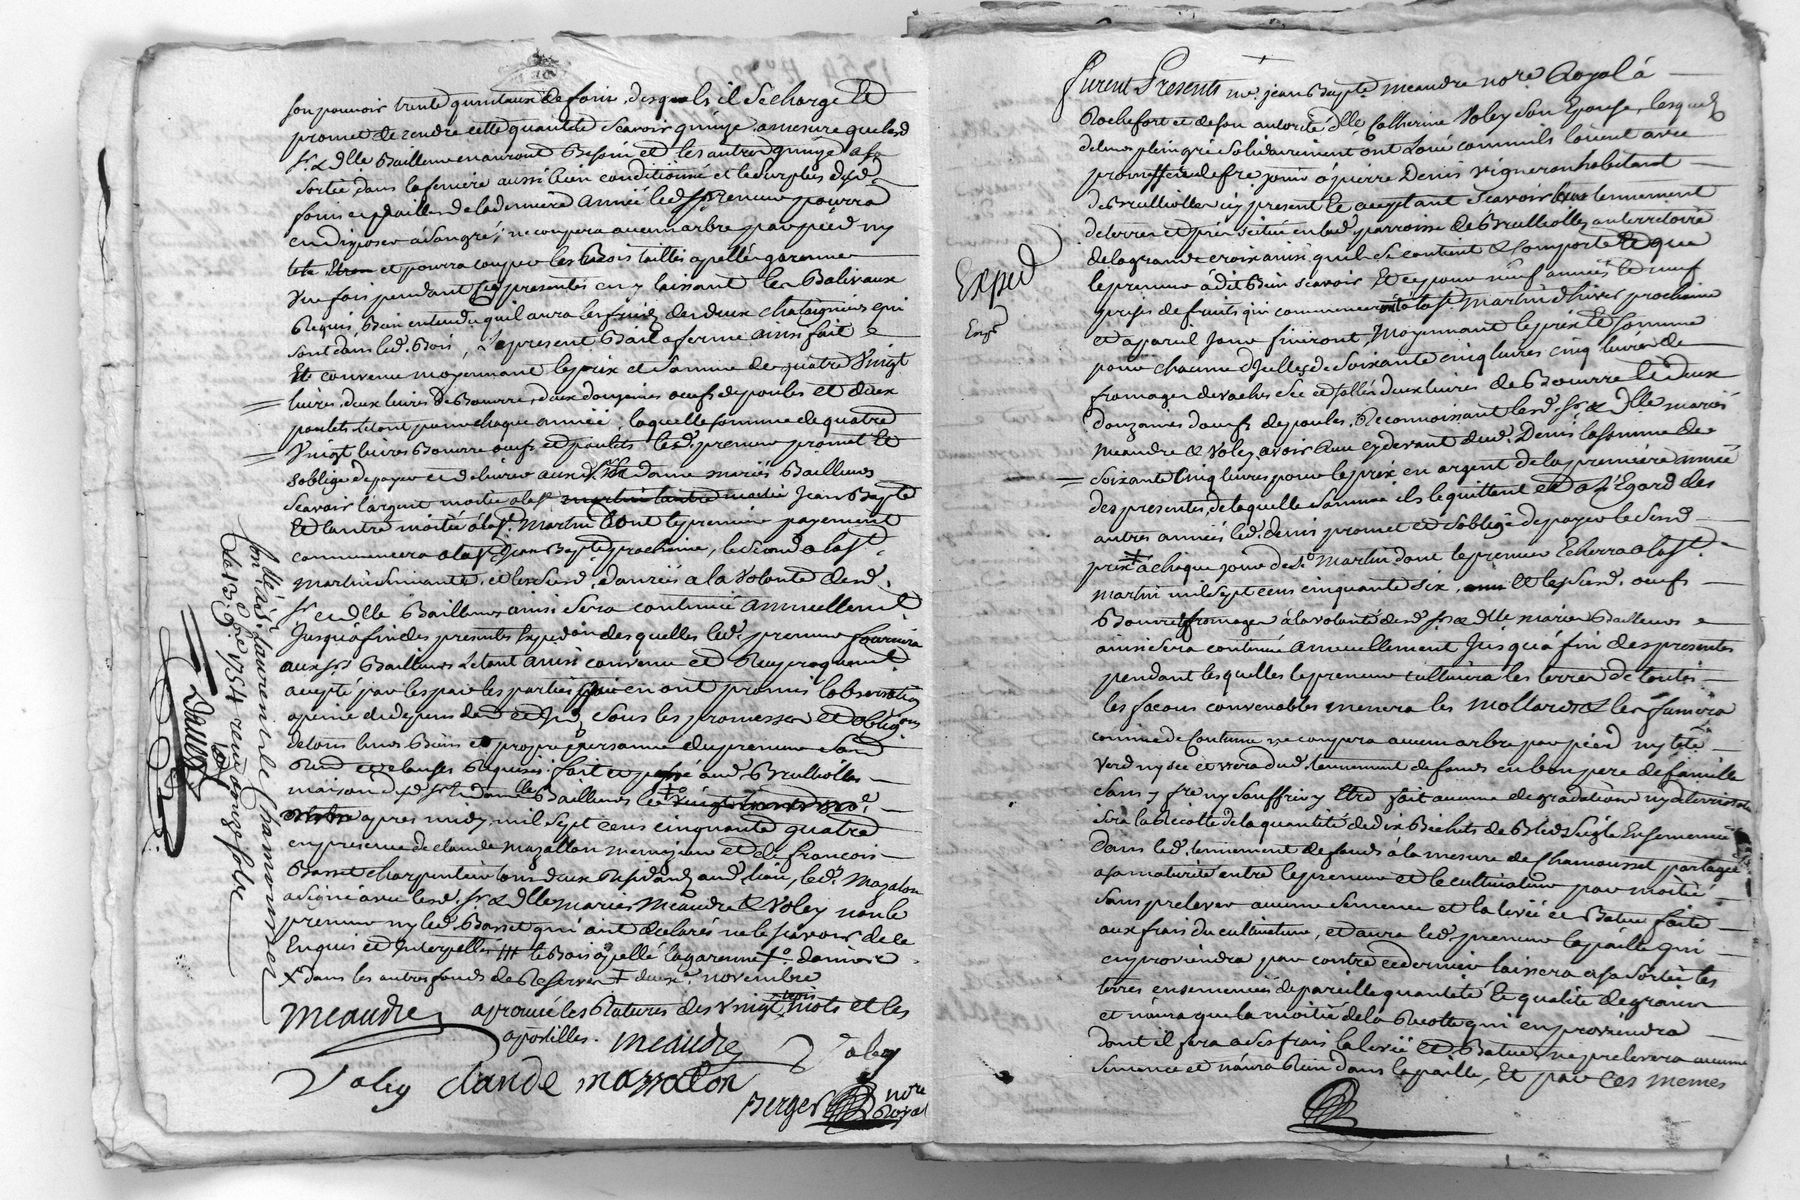 son pouvoir trente quintaux de foin, desquels il se charge et
promet de rendre cette quantité scavoir quinze a mesure que lesd
sr. & dlle Bailleurs en auront Besoin et les autres quinze a sa
sortie dans la feniere aussi bien conditionné et le surplus desd.
foins et pailles de la derniere année led preneur pourra
en disposer a son gré, ne coupera aucun arbre par pied ny
tete et pourra couper les bois taillis apellés garenne
une fois pendant ces presentes en y laissant les Balivaux
Requis, Bien entendu quil aura les fruits des deux chataigniers qui
sont dans led. Bois, Le present Bail a ferme ainsi fait
Et convenu moyennant le prix et somme de quatre Vingt
livres, deux livres de Beurre, deux douzaines oeufs de poules et deux
poulets le tout pour chaque année, laquelle somme de quatre
Vingt livres Beurre oeufs et poulets led. preneur promet et
soblige de payer et delivrer auxd. mariés Bailleurs
Scavoir largent moitié a la st. martin lautre moitié Jean Bapte
Et lautre moitié à la st. Martin dont le premier payement
commencera a la st Jean Bapte prochaine, le second a la st.
martin suivante, et les oeufs, denrées a la Volonté desd.
sr. et dlle Bailleurs ainsi sera continué annuellement
Jusqu'a fin des presentes Expedition desquelles led. preneur fournira
auxd. Bailleurs le tout ainsi convenu et Reciproquement
accepté par les par les parties qui en ont promis lobservation
a peine de depens sous les promesses et obligons
de tous leurs Biens et propre personne du preneur
et clauses Requises: fait et passé aud. Brullioles
maison desd. sr. et dame Bailleurs le
apres midy mil sept cens cinquante quatre
en presence de claude mazallon menager et de françois
Basset charpentier tous deux Residans aud. lieu, led. Mazalon
a signé avec lesd. sr & dlle mariés Meaudre & Voley non le
preneur ny led. Basset qui ont declarés ne le scavoir de ce
Enquis et Interpellés le Bois apellé la garenne
dans les autres fonds de Reserve novembre
meaudre aprouvé les Ratures des vingt trois mots et les
apostilles. meaudre Voley
Voley claude mazzalon
Berger nore Royal
Conllé à St. Laurent de Chamousset
le 13. 9bre 1754 reçu onze sols
Exped
Furent Presents me. jean Bapte. meaudre nore. Royal à
Rochefort et de son autorité dlle Catherine Voley son Epouse, lesquels
de leur plein gré solidairement ont Loué comme ils louent avec
promesse de fre jouir à pierre Denis vigneron habitant
de Brullioles icy present et aceptant Scavoir tennement
de terres et pré situé en lad. parroisse de Brullioles au terretoire
de la grande croix ainsi quil se contient & comporte Et que
le preneur à dit Bien scavoir Et ce pour neuf années et neuf
prises de fruits qui commenceront a la st. martin d'hiver prochaine
et a pareil jour finiront, Moyennant le prix et somme
pour chacune d'Icelles de soixante cinq livres cinq livres de
fromages de vaches sec et sallés deux livres de Beurre et deux
douzaines d'oeufs de poules, Reconnoissant lesd. sr & Dlle mariés
Meaudre & Voley avoir Reçu cy devant dud. Denis la somme de
soixante cinq livres pour le prix en argent de la premiere année
des presentes, de laquelle somme ils le quittent et a l'Egard des
autres années led. denis promet et s'oblige de payer le susd
prix a chaque jour de st. Martin dont le premier Echerra a la st.
martin mil sept cens cinquante six, et les susd. oeufs
Beurre & fromages à la volonté desd. sr & dlle mariés Bailleurs
ainsi sera continué annuellement Jusqu'à fin des presentes
pendant lesquelles le preneur cultivera les terres de toutes
les façons convenables menera les mollards & les fumera
comme de Coutume ne coupera aucun arbre par pied ny tete
verd ny sec et usera dud. tennement de fonds en bon pere de famille
sans y fre ny souffrir y etre fait aucune degradation ny deterioration
sera la Recolte de la quantité de dix Bichets de Bled seigle Ensemencé
dans led. tennement de fonds à la mesure de Chamousset partagée
a sa maturité entre le preneur et le cultivateur par moitié
sans prelever aucune semence et la levée et Batue faite
aux frais du cultivateur, et aura led. preneur la paille qui
en proviendra par contre ce dernier laissera a sa sortie les
terres ensemencées de pareille quantité Et qualité de grain
et n'aura que la moitié de la Recolte qui en proviendra
dont il fera a ses frais la levée et Batue, ne prelevera aucune
semence et n'aura Rien dans la paille, Et par ces memes